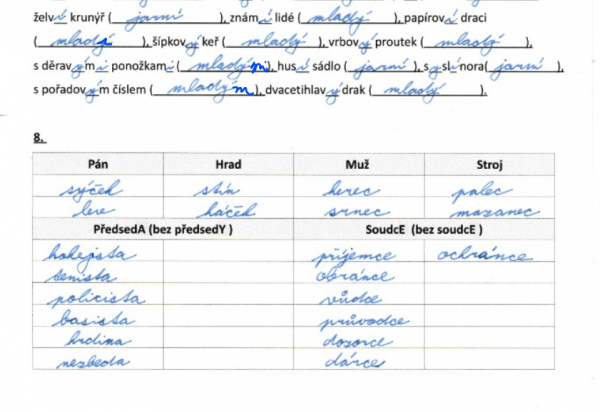 želví krunýř (jarní), známí lidé (mladý), papíroví draci
(mladý), šípkový keř (mladý), vrbový proutek (mladý),
s děravými ponožkami (mladým), husí sádlo (jarní), syslí nora(jarní),
s pořadovým číslem (mladým), dvacetihlavý drak (mladý).
8.
Pán Hrad Muž Stroj
sýček stín herec palec
lev háček srnec mazanec
PředsedA (bez předsedY ) SoudcE (bez soudcE )
hokejista příjemce ochránce
tenista obránce
policista vůdce
basista průvodce
hrdina dozorce
nezbeda dárce